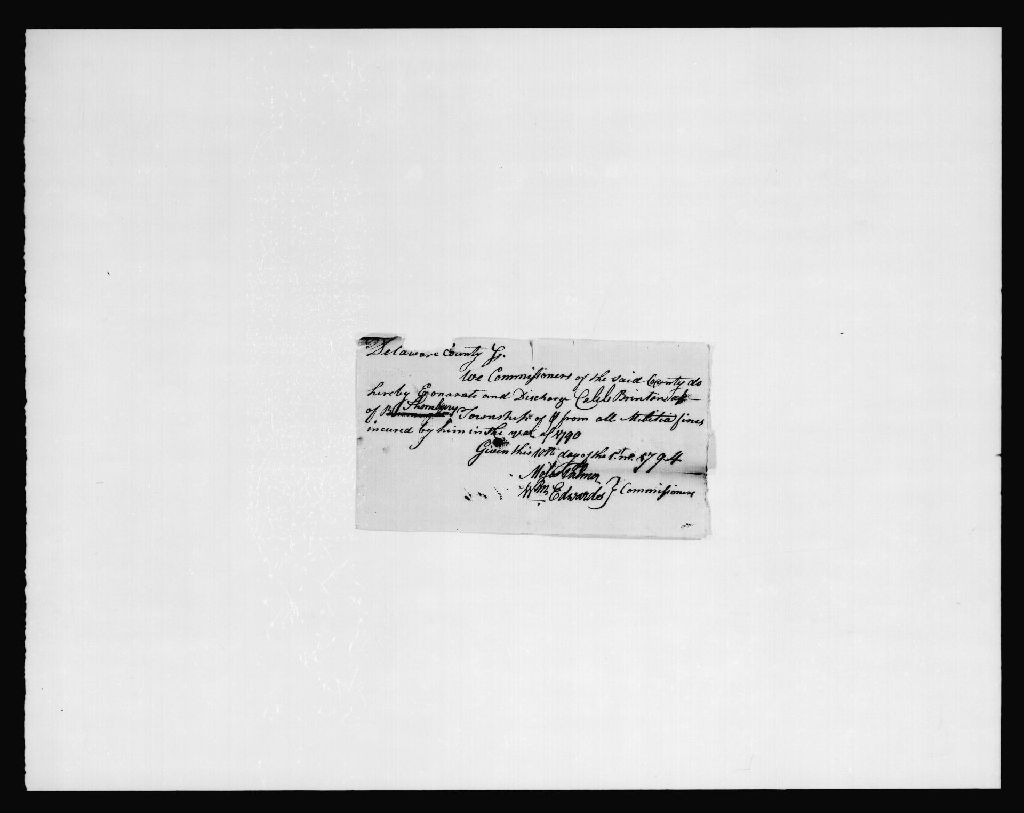 Delaware County Ss.
We Commissioners of the said County do
hereby Exonarate and Discharge Caleb Brinton
of Thornbury Township of & from all Militia fines
incured by him in the year of 1790
Given this 10th day of the 1794
Moses Palmer
Wm Edwards } Commissioners